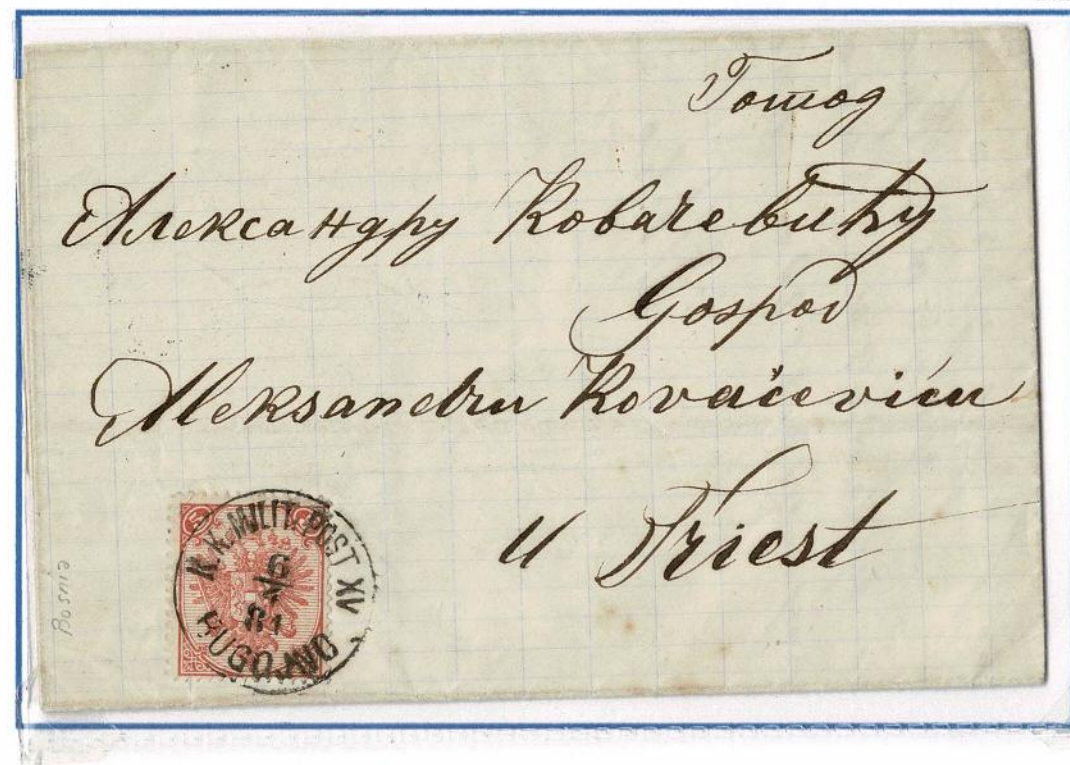 Господ
Александру Ковачевићу
Gospod
Aleksandru Kovačeviću
u Triest
K. K. MILIT. POST XV
6
81
BUGOJNO
Bosnie